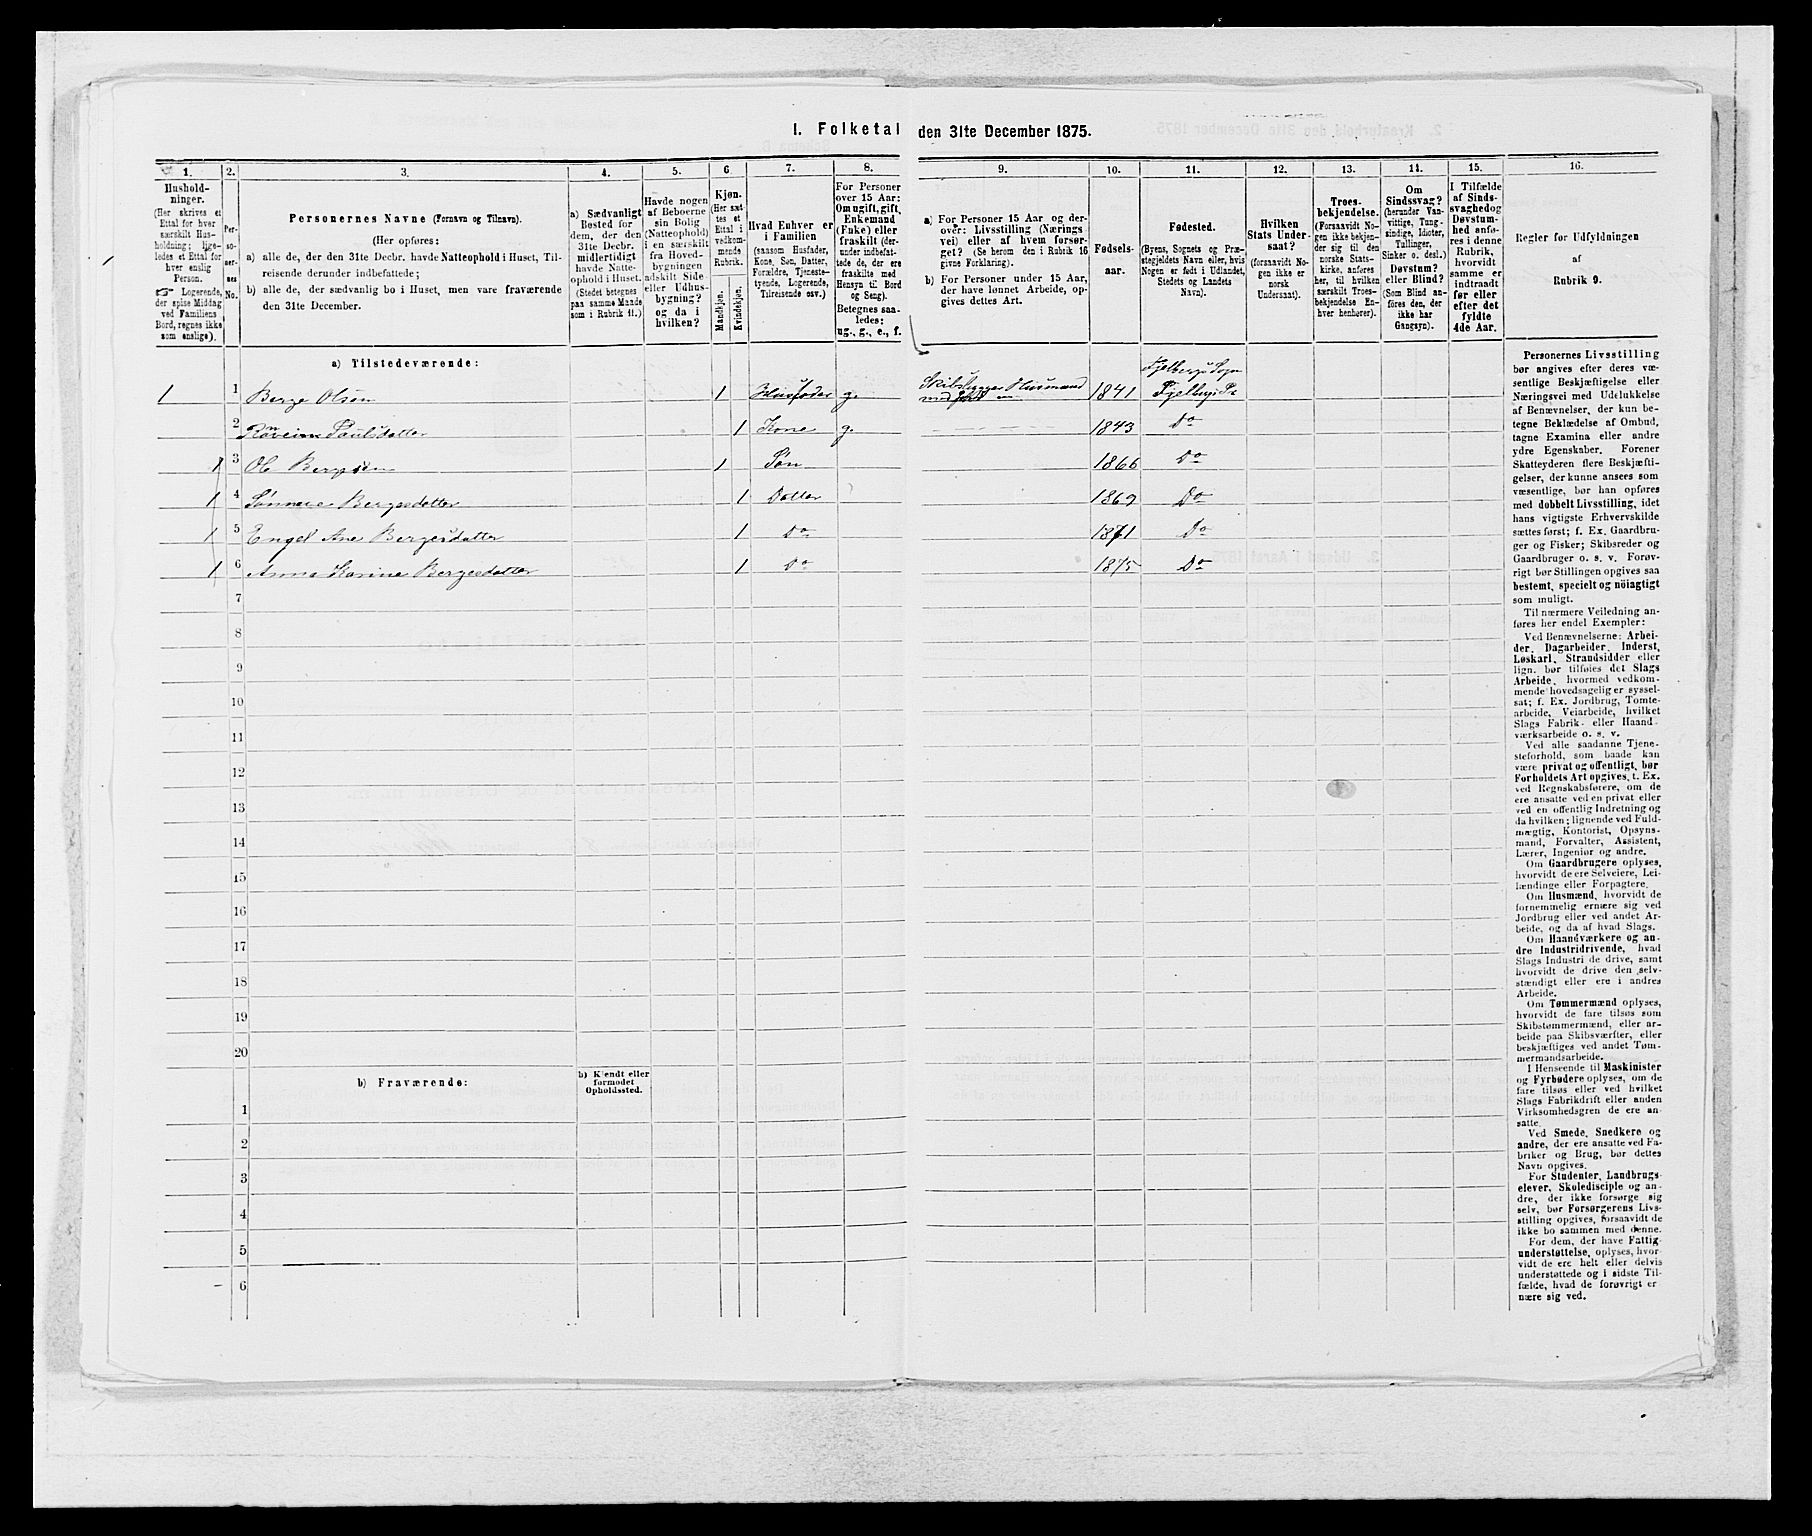 1. Folketal den 31te December 1875.
1. 2. 3. 4. 5. 6. 7. 8. 9. 10. 11. 12. 13. 14. 15. 16.
Hushold-
ninger.
(Her skrives et
Ettal for hver
særskilt Hus-
holdning; lige-
ledes et Ettal for
hver enslig
Person.
☞ Logerende,
der spise Middag
ved Familiens
Bord, regnes ikke
som enslige).
Per-
so-
ner-
nes
No.
Personernes Navne (Fornavn og Tilnavn).
(Her opføres:
a) alle de, der den 31te Decbr. havde Natteophold i Huset, Til-
reisende derunder indbefattede;
b) alle de, der sædvanlig bo i Huset, men vare fraværende
den 31te December.
a) Sædvanligt
Bosted for
dem, der den
31te Decbr.
midlertidigt
havde Natte-
ophold i Huset.
(Stedet betegnes
paa samme Maade
som i Rubrik 11.)
Havde nogen
af Beboerne
sin Bolig
(Natteophold)
i en særskilt
fra Hoved-
bygningen
adskilt Side
eller Udhus-
bygning?
og da i
hvilken?
Kjøn.
(Her sæt-
tes et
Ettal i
vedkom-
mende
Rubrik.
Mandkjøn.
Kvindekjøn.
Hvad Enhver er
i Familien
(saasom Husfader,
Kone, Søn, Datter,
Forældre, Tjeneste-
tyende, Logerende,
Tilreisende osv.)
For Personer
over 15 Aar:
Om ugift, gift,
Enkemand
(Enke) eller
fraskilt (der-
under indbefat-
tede de, der ere
fraskilte med
Hensyn til Bord
og Seng).
Betegnes saa-
ledes:
ug., g., e., f.
a) For Personer 15 Aar og der-
over: Livsstilling (Nærings-
vei) eller af hvem forsør-
get? (Se herom den i Rubrik 16
givne Forklaring).
b) For Personer under 15 Aar,
der have lønnet Arbeide, op-
gives dettes Art.
Fødsels-
aar.
Fødested.
(Byens, Sognets og Præ-
stegjeldets Navn eller, hvis
Nogen er født i Udlandet,
Stedets og Landets
Navn).
Hvilken
Stats Under-
saat?
(forsaavidt No-
gen ikke er
norsk
Undersaat).
Troes-
bekjendelse.
(Forsaavidt No-
gen ikke bekjen-
der sig til den
norske Stats-
kirke, anføres
her, til hvilken
særskilt Troes-
bekjendelse En-
hver henhører).
Om
Sindssvag?
(herunder Van-
vittige, Tung-
sindige, Idioter,
Tullinger,
Sinker o. desl.)
Døvstum?
eller Blind?
(Som Blind an-
føres den, der
ikke har
Gangsyn).
I Tilfælde
af Sinds-
svaghed og
Døvstum-
hed anfø-
res i denne
Rubrik,
hvorvidt
samme er
indtraadt
før eller
efter det
fyldte
4de Aar.
Regler for Udfyldningen
af
Rubrik 9.
a) Tilstedeværende:
Fjelbergs Sogn
1 1 Berge Olsen 1 Husfader g. Skibsbygger Husmand 1841 Fjelbergs Pr
med Jord
2 Paulsdatter 1 Kone g. 1843 Do
1 3 Ole Bergesen 1 Søn 1866 Do
1 4 Bergesdatter 1 Datter 1869 Do
1 5 Engel Ane Bergesdatter 1 Do 1871 Do
1 6 Anna Karine Bergesdatter 1 Do 1875 Do
7
8
9
10
11
12
13
14
15
16
17
18
19
20
b) Fraværende:
b) Kjendt eller
formodet
Opholdssted.
1
2
3
4
5
6
Personernes Livsstilling
bør angives efter deres væ-
sentlige Beskjæftigelse eller
Næringsvei med Udelukkelse
af Benævnelser, der kun be-
tegne Beklædelse af Ombud,
tagne Examina eller andre
ydre Egenskaber. Forener
Skatteyderen flere Beskjæfti-
gelser, der kunne ansees som
væsentlige, bør han opføres
med dobbelt Livsstilling, idet
hans vigtigste Erhvervskilde
sættes først; f. Ex. Gaardbru-
ger og Fisker; Skibsreder og
Gaardbruger o. s. v. Forøv-
rigt bør Stillingen opgives saa
bestemt, specielt og nöiagtigt
som muligt.
Til nærmere Veiledning an-
føres her endel Exempler:
Ved Benævnelserne: Arbei-
der, Dagarbeider, Inderst,
Løskarl, Strandsidder eller
lign. bør tilføies det Slags
Arbeide, hvormed vedkom-
mende hovedsagelig er syssel-
sat; f. Ex. Jordbrug, Tomte-
arbeide, Veiarbeide, hvilket
Slags Fabrik- eller Haand-
værksarbeide o. s. v.
Ved alle saadanne Tjene-
steforhold, som baade kan
være privat og offentligt, bør
Forholdets Art opgives, t. Ex.
ved Regnskabsførere, om de
ere ansatte ved en privat eller
ved en offentlig Indretning og
da hvilken; lignende ved Fuld-
mægtig, Kontorist, Opsyns-
mand, Forvalter, Assistent,
Lærer, Ingeniør og andre.
Om Gaardbrugere oplyses,
hvorvidt de ere Selveiere, Lei-
lændinge eller Forpagtere.
Om Husmænd, hvorvidt de
fornemmelig ernære sig ved
Jordbrug eller ved andet Ar-
beide, og da af hvad Slags.
Om Haandværkere og an-
dre Industridrivende, hvad
Slags Industri de drive, samt
hvorvidt de drive den selv-
stændigt eller ere i andres
Arbeide.
Om Tømmermænd oplyses,
hvorvidt de fare tilsøs som
Skibstømmermænd, eller ar-
beide paa Skibsværfter, eller
beskjæftiges ved andet Tøm-
mermandsarbeide.
I Henseende til Maskinister
og Fyrbødere oplyses, om de
fare tilsøs eller ved hvilket
Slags Fabrikdrift eller anden
Virksomhedsgren de ere an-
satte.
Ved Smede, Snedkere og
andre, der ere ansatte ved Fa-
briker og Brug, bør dettes
Navn opgives.
For Studenter, Landbrugs-
elever, Skoledisciple og an-
dre, der ikke forsørge sig
selv, bør Forsørgerens Livs-
stilling opgives, forsaavidt de
ikke bo sammen med denne.
For dem, der have Fattig-
understøttelse, oplyses, hvor-
vidt de ere helt eller delvis
understøttede og i sidste Til-
fælde, hvad de forøvrigt er-
nære sig ved.